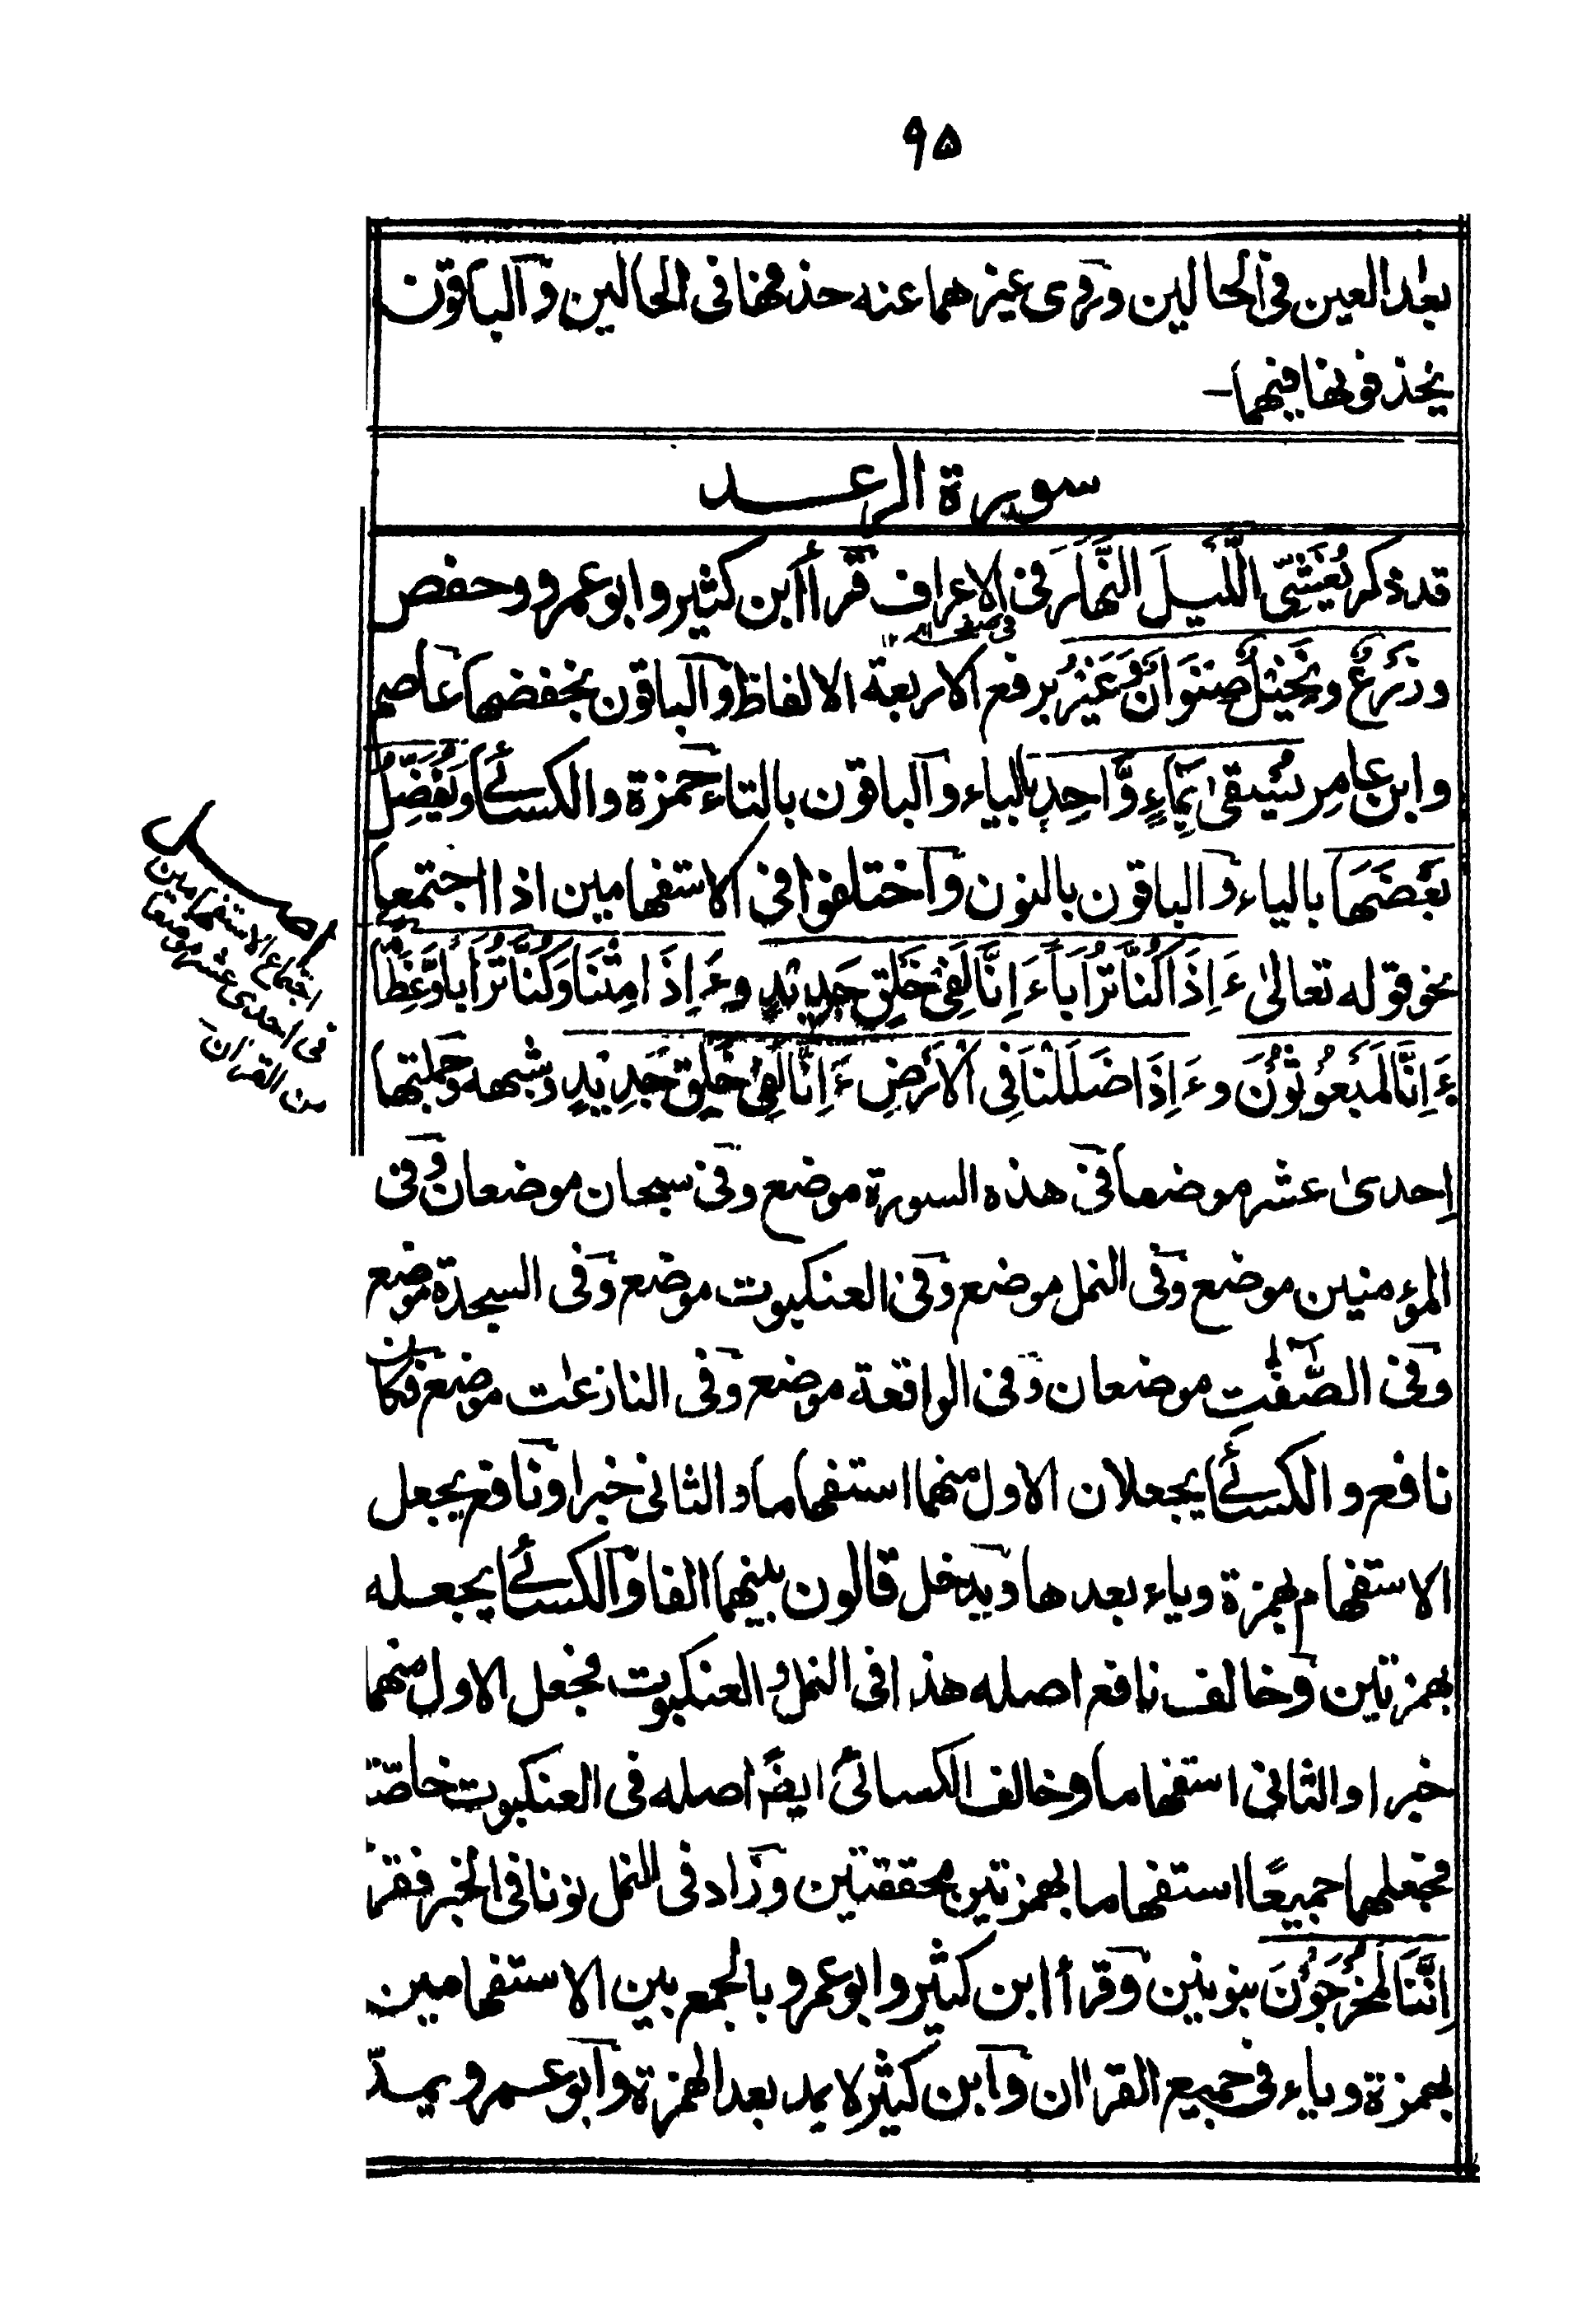 ٩٥
بعد العين فى الحالين وروى غيرهما عنه حذفها فى الحالين والباقون
يحذفونها فيهما۔
سورة الرعد
قد ذكر يُغَشِّى الَّيلَ النَّهَارَ فى الاعراف قرأ ابن كثير وابو عمرو وحفص
وزَرْعٌ ونَخِيْلٌ صِنْوَانٌ وَّغَيْرُ برفع الاربعة الالفاظ والباقون بخفضها عاصم
وابن عامر يُسْقىٰ بِمَاءٍ وَّاحِدٍ بالياء والباقون بالتاء حمزة والكسائى ويُفَضِّلُ
بَعْضَهَا بالياء والباقون بالنون واختلفوا فى الاستفهامين اذا اجتمعا
نحو قوله تعالىٰ ءَاِذَا كُنَّا تُرَابًا ءَاِنَّا لَفِىْ خَلْقٍ جَدِيْدٍ وءَاِذَا مِتْنَا وَكُنَّا تُرَابًا وَّعِظَامًا
ءَاِنَّا لَمَبْعُوْثُوْنَ وءَاِذَا ضَلَلْنَا فِى الْاَرْضِ ءَاِنَّا لَفِىْ خَلْقٍ جَدِيْدٍ وشبهه وجملتها
اِحدىٰ عشر موضعا فى هذه السورة موضع وفى سبحان موضعان وفى
المؤمنين موضع وفى النمل موضع وفى العنكبوت موضع وفى السجدة موضع
وفى الصّٰفّٰت موضعان وفى الواقعة موضع وفى النازعٰت موضع فكان
نافع والكسائى يجعلان الاول منهما استفهاما والثانى خبرا ونافع يجعل
الاستفهام بهمزة وياء بعدها ويدخل قالون بينهما الفا والكسائى يجعله
بهمزتين وخالف نافع اصله هذا فى النمل والعنكبوت فجعل الاول منهما
خبرا والثانى استفهاما وخالف الكسائى ايضًا اصله فى العنكبوت خاصّة
فجعلهما جميعًا استفهاما بهمزتين محققتين وزاد فى النمل نونا فى الخبر فقرأ
اِنَّنَا لَمُخْرَجُوْنَ بنونين وقرأ ابن كثير وابو عمرو بالجمع بين الاستفهامين
بهمزة وياء فى جميع القراٰن وابن كثير لا يمد بعد الهمزة وابو عمرو يمدّ
اجتماع الاستفهامين
فى احدى عشر موضعا
من القراٰن